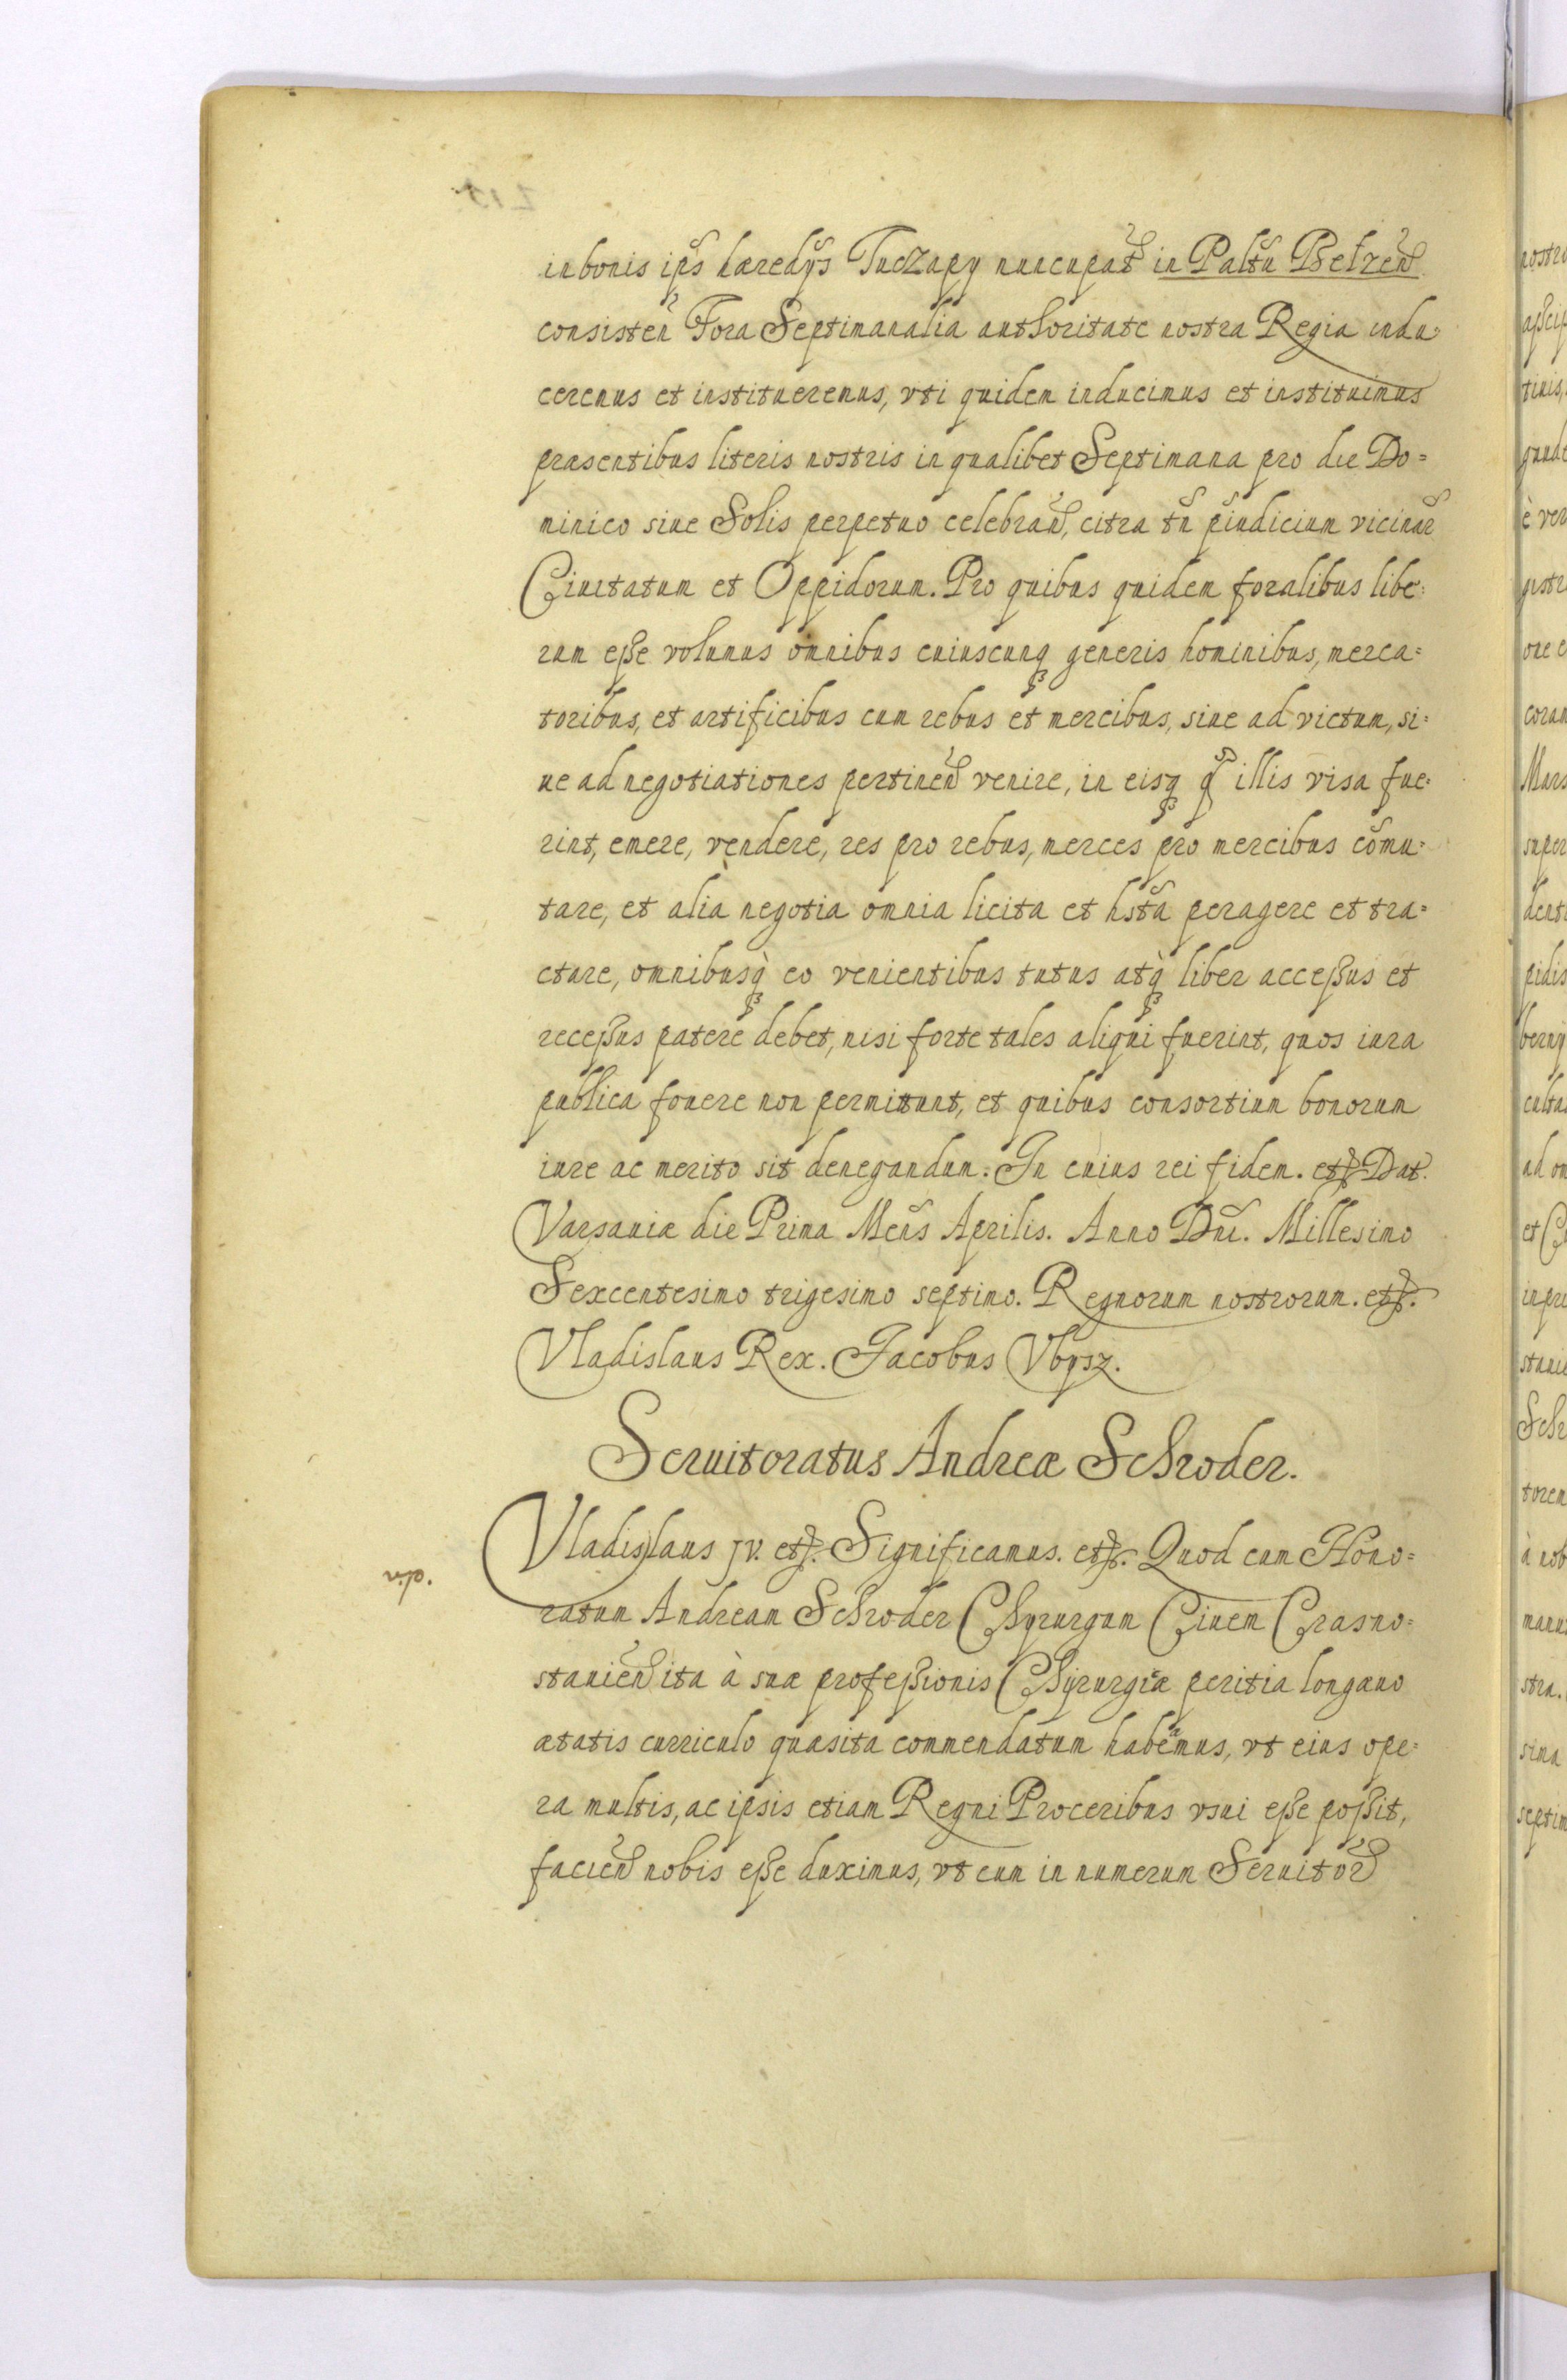 in bonis ips̃ hæredÿs Tuczapy nuncupat̃ in Paltũ Belzeñ
consisteñ Fora Septimanalia authoritate nostra Regia indu=
ceremus et institueremus, vti quidem inducimus et instituimus
præsentibus literis nostris in qualibet Septimana pro die Do=
minico siue Solis perpetuo celebrañ, citra tñ p̃iudicium vicinar̃
Ciuitatum et Oppidorum. Pro quibus quidem foralibus libe=
rum eße volumus omnibus cuiuscunq̃ generis hominibus, merca=
toribus, et artificibus cum rebus et mercibus, siue ad victum, si=
ue ad negotiationes pertineñ venire, in eisq̃ q̃ illis visa fue=
rint, emere, vendere, res pro rebus, merces pro mercibus com̃u=
tare, et alia negotia omnia licita et hñsta peragere et tra=
ctare, omnibusq̀ eo venientibus tutus atq̀ liber acceßus et
receßus patere debet, nisi forte tales aliqui fuerint, quos iura
publica fouere non permittunt, et quibus consortium bonorum
iure ac merito sit denegandum. In cuius rei fidem. etc̃. Dat.
Varsauiæ die Prima Meñs Aprilis. Anno Dñi. Millesimo
Sexcentesimo trigesimo septimo. Regnorum nostrorum. etc̃.
Vladislaus Rex. Jacobus Vbysz.
Seruitoratus Andreæ Schroder.
Vladislaus IV. etc̃. Significamus. etc̃. Quod cum Hono=
ratum Andream Schroder Chyrurgum Ciuem Crasno=
stauieñ ita à suæ profeßionis Chyrurgiæ peritia longæuo
ætatis curriculo quæsita commendatum habeamus, vt eius ope=
ra multis, ac ipsis etiam Regni Proceribus vsui eße poßit,
facieñ nobis eße duximus, vt eum in numerum Seruitor̃